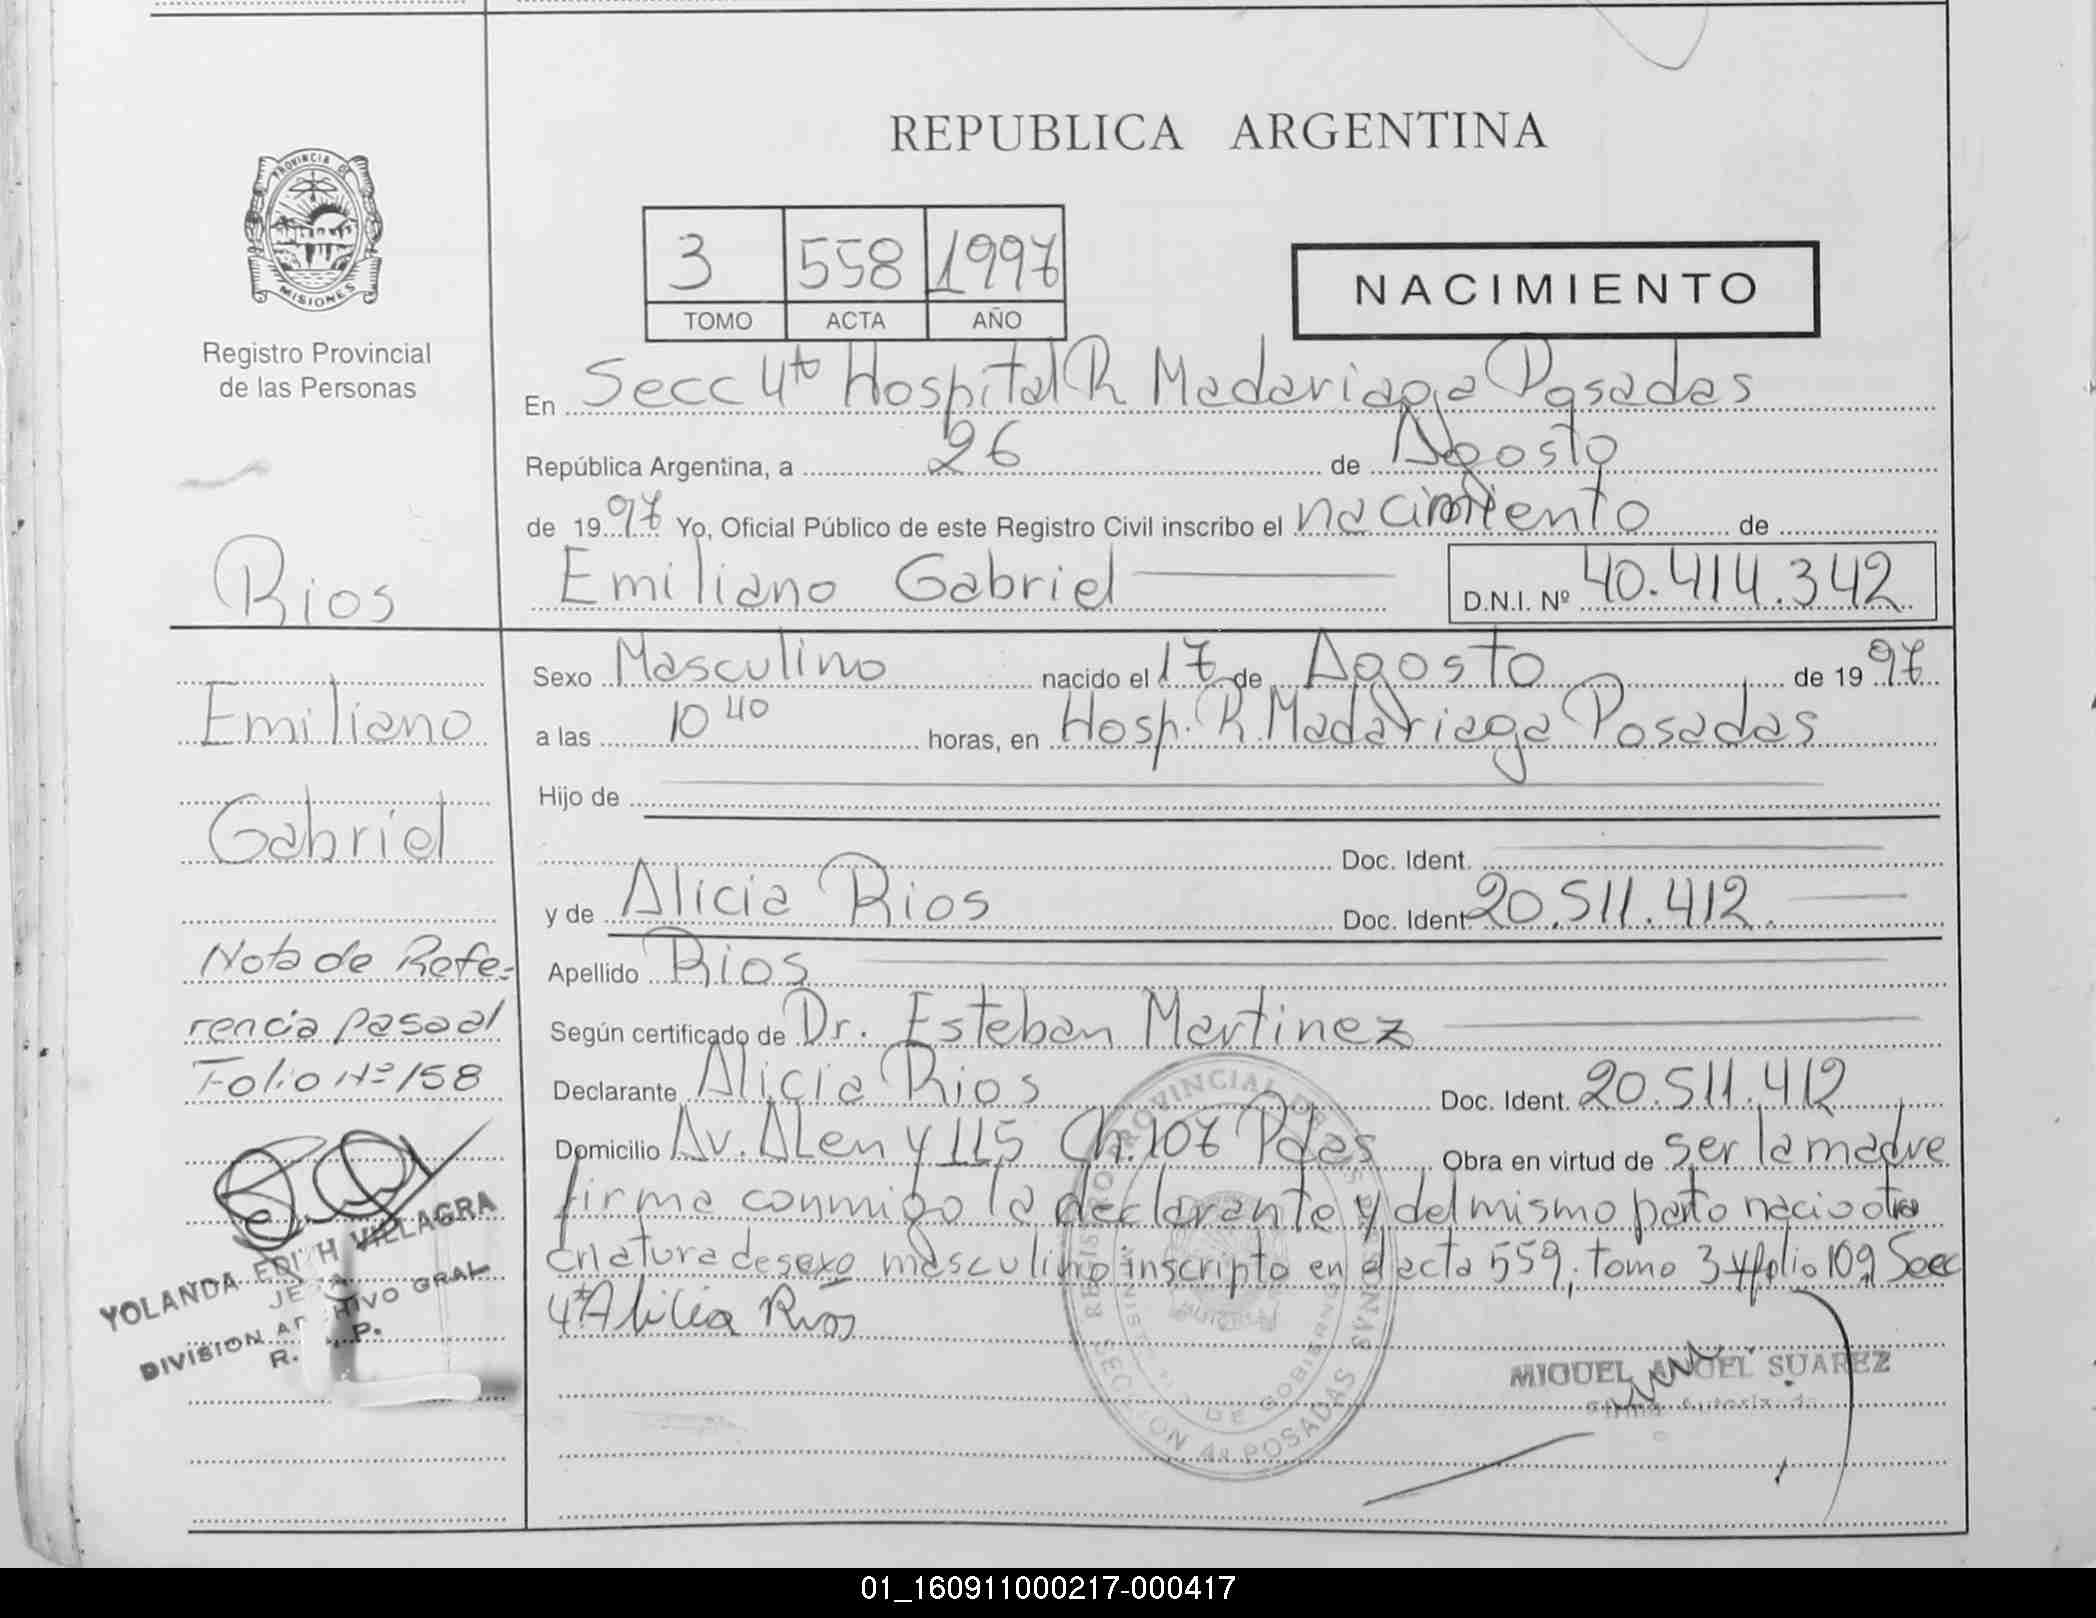 REPUBLICA ARGENTINA
PROVINCIA DE
MISIONES
Registro Provincial
de las Personas
3 558 1997
TOMO ACTA AÑO
NACIMIENTO
En Secc 4ta Hospital R Madariaga Posadas
República Argentina, a 26 de Agosto
de 1997 Yo, Oficial Público de este Registro Civil inscribo el nacimiento de
Emiliano Gabriel D.N.I. Nº 40.414.342
Rios
Emiliano
Gabriel
Nota de Refe-
rencia pasa al
Folio Nº 158
YOLANDA EDITH VILLAGRA
JE
DIVISION AR HIVO GRAL
R. P.
Sexo Masculino nacido el 17 de Agosto de 1997
a las 10 40 horas, en Hosp. R. Madariaga Posadas
Hijo de
Doc. Ident.
y de Alicia Rios Doc. Ident. 20.511.412.
Apellido Rios
Según certificado de Dr. Esteban Martinez
Declarante Alicia Rios Doc. Ident. 20.511.412
Domicilio Av. ALem y 115 Ch. 107 Pdas Obra en virtud de ser la madre
firma conmigo la declarante y del mismo parto nacio otra
criatura de sexo masculino inscripto en el acta 559, tomo 3 y folio 109 Secc
4ta Alicia Rios
REGISTRO PROVINCIAL DE LAS PERSONAS
SECCION 4a POSADAS
DE GOBIERNO
MIGUEL ANGEL SUAREZ
Firma Autorizada
01_160911000217-000417